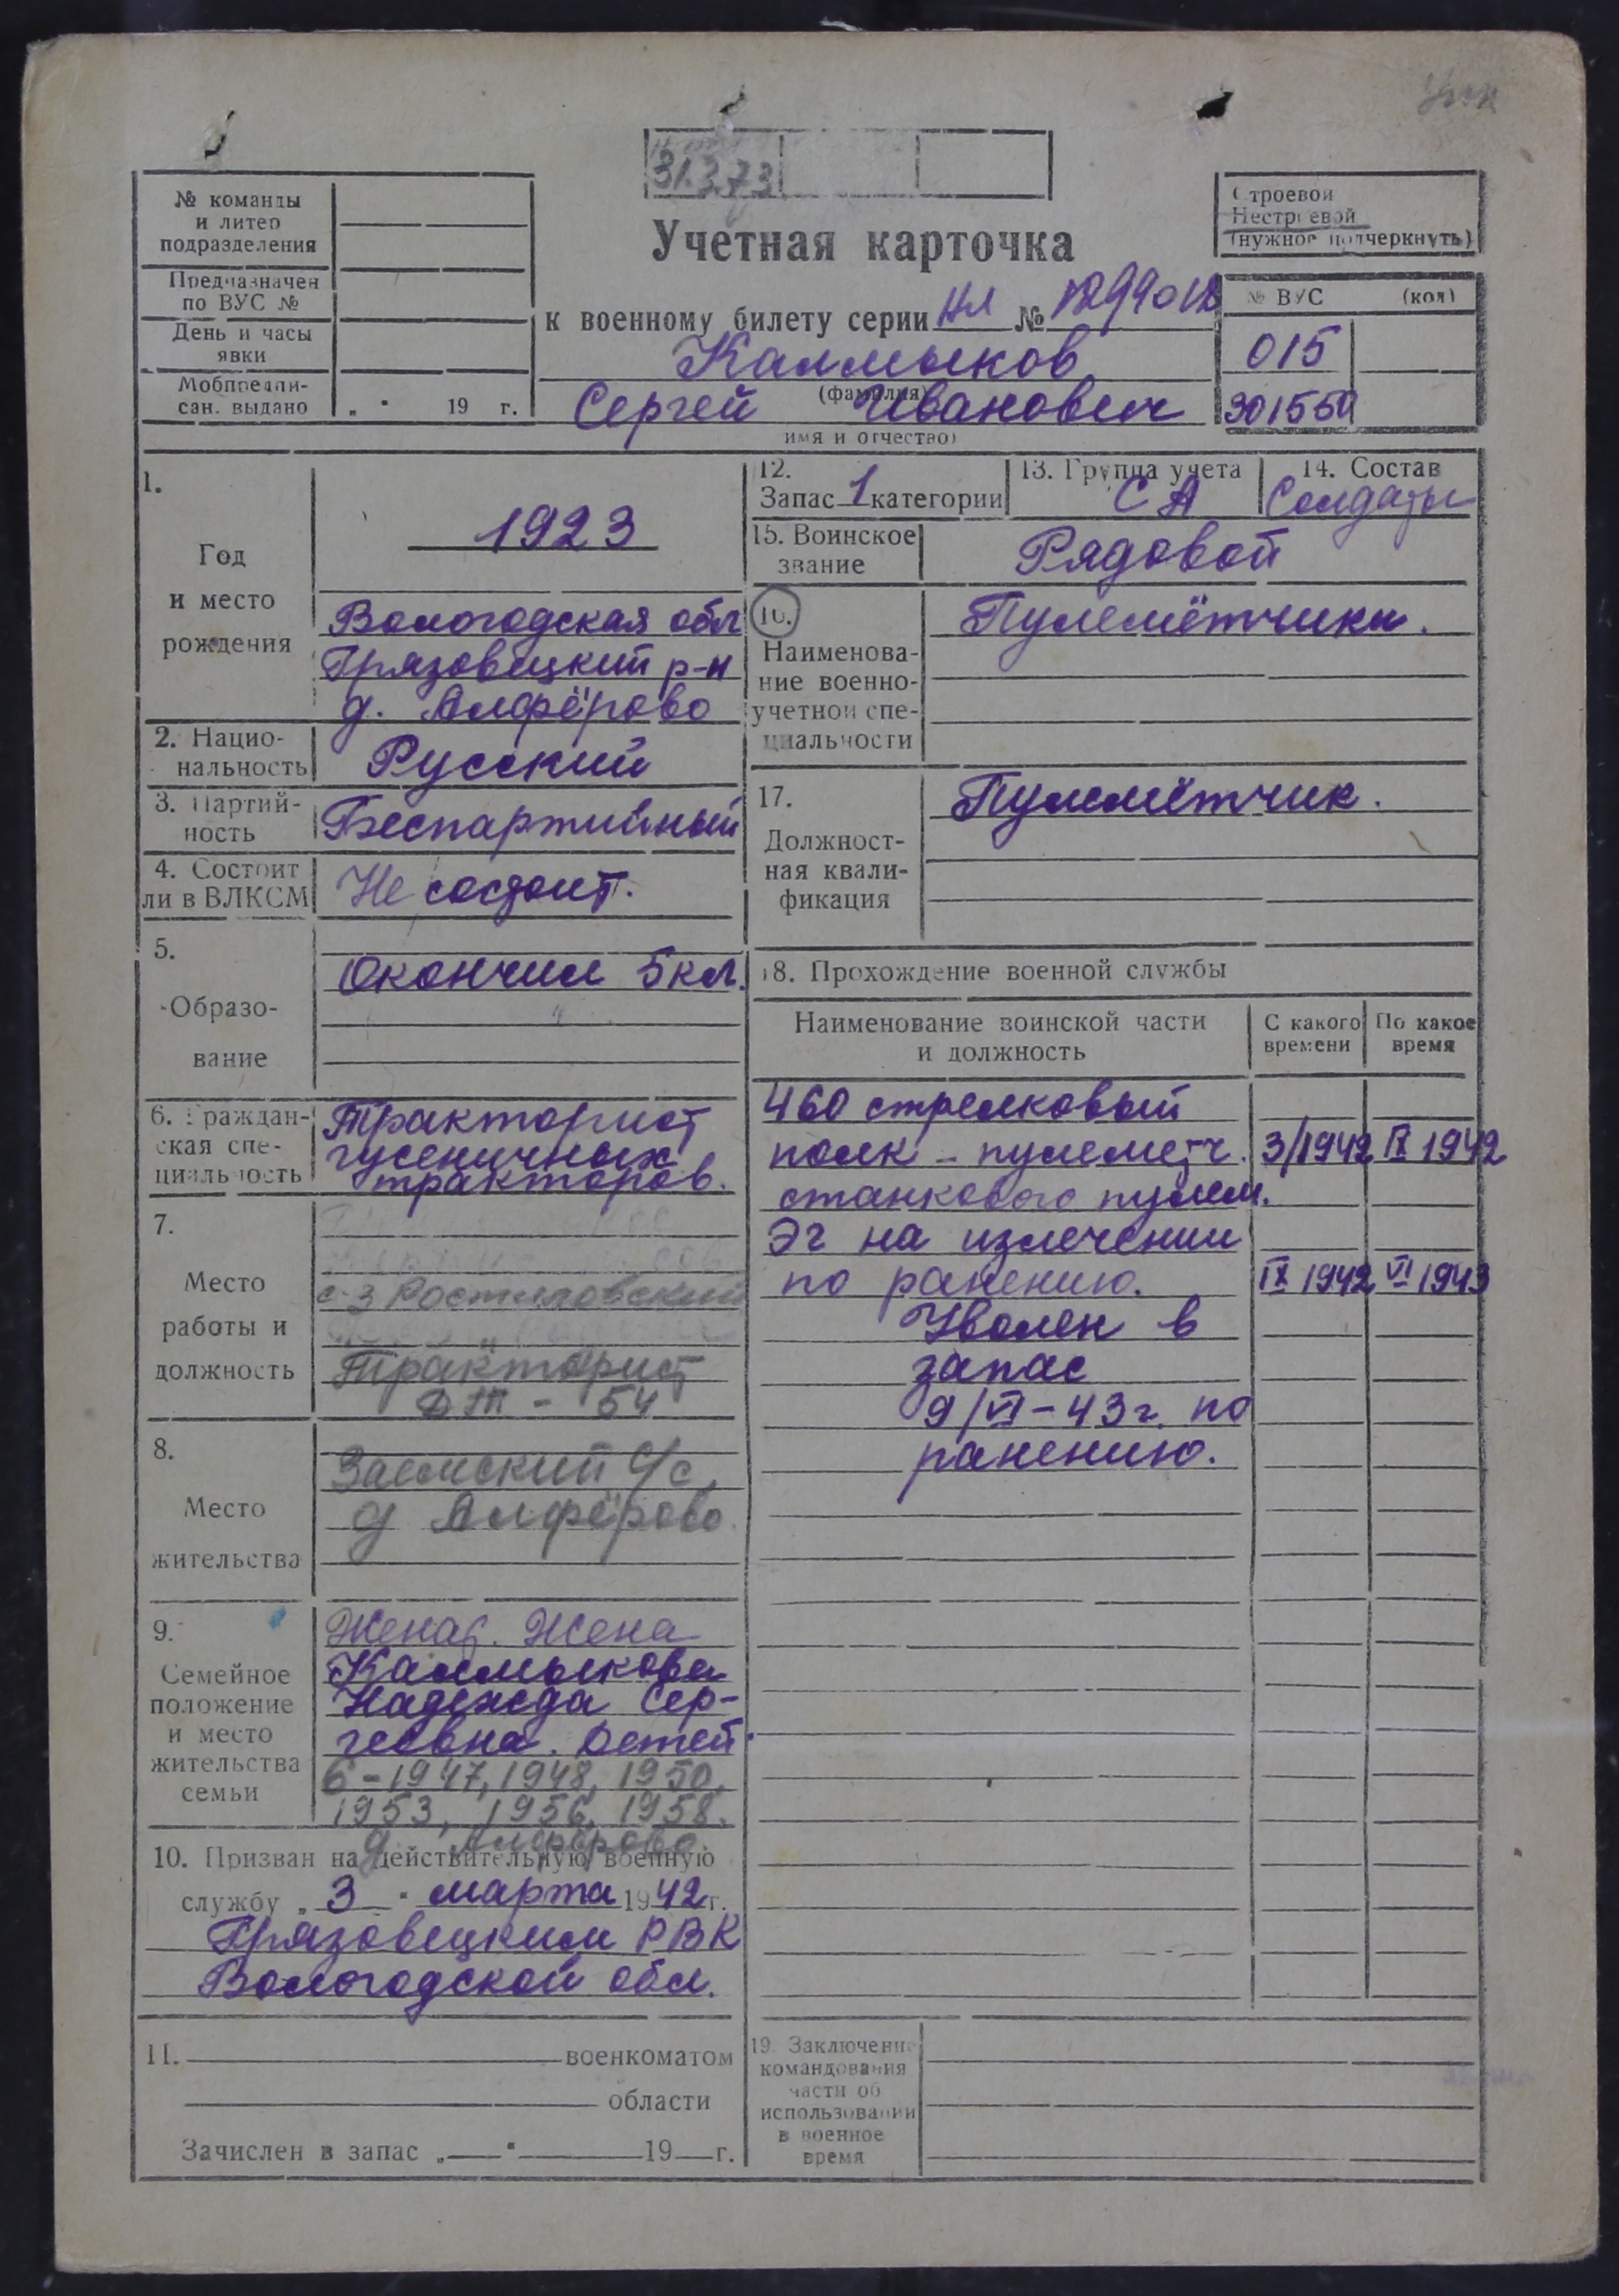 31.3.73
№ команды
и литер
подразделения
Предназначен
по ВУС №
День и часы
явки
Мобпредпи-
сан. выдано „ " 19 г.
Учетная карточка
к военному билету серии НЛ №
Калмыков
(фамилия)
Сергей Иванович
имя и отчество)
Строевой
Нестроевой
(нужное подчеркнуть)
№ ВУС (код)
015
1.
Год
и место
рождения
1923
Вологодская обл
Грязовецкий р-н
д. Алфёрово
2. Нацио-
нальность
Русский
3. Партий-
ность
Беспартийный
4. Состоит
ли в ВЛКСМ
Не состоит.
5.
Образо-
вание
Окончил 5 кл.
6. Граждан-
ская спе-
циальность
Тракторист
гусеничных
тракторов.
7.
Место
работы и
должность
с-з Ростиловский
Тракторист
ДТ - 54
8.
Место
жительства
Заемский с/с,
д Алфёрово.
9.
Семейное
положение
и место
жительства
семьи
Женат. Жена
Калмыкова
Надежда Сер-
геевна. Детей
6 - 1947, 1948, 1950,
1953, 1956, 1958.
д. Алфёрово.
10. Призван на действительную военную
службу „ 3 " марта 1942 г.
Грязовецким РВК
Вологодской обл.
11. военкоматом
области
Зачислен в запас „ " 19 г.
12.
Запас 1 категории
13. Группа учета
СА
14. Состав
Солдаты
15. Воинское
звание
Рядовой
16.
Наименова-
ние военно-
учетной спе-
циальности
Пулемётчики.
17.
Должност-
ная квали-
фикация
Пулемётчик.
18. Прохождение военной службы
Наименование воинской части
и должность
С какого
времени
По какое
время
460 стрелковый
полк - пулеметч. 3/1942 IX 1942
станкового пулем.
ЭГ на излечении
по ранению. IX 1942 VI 1943
Уволен в
запас
9/VI-43 г. по
ранению.
19. Заключение
командования
части об
использовании
в военное
время